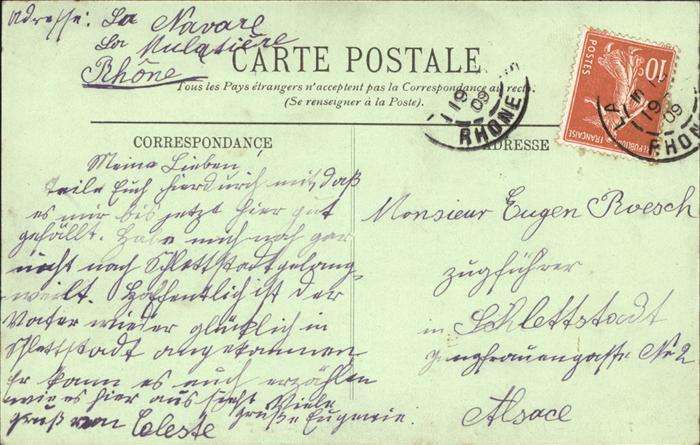 Adresse: La Navare
La Mulatière
Rhône
CARTE POSTALE
Tous les Pays étrangers n'acceptent pas la Correspondance au recto
(Se renseigner à la Poste).
19
09
RHONE
10
POSTES
REPUBLIQUE FRANÇAISE
LA
19
09
RHONE
CORRESPONDANCE
Meine Lieben!
Teile Euch hierdurch mit, daß
es mir bis jetzt hier gut
gefällt. Habe mich noch gar
nicht nach Schlettstadt gelang-
weilt. Hoffentlich ist der
Vater wieder glücklich in
Schlettstadt angekommen
Er kann es auch erzählen
wie es hier aus sieht Viele
Gruß von Celeste Grüße Eugenie.
ADRESSE
Monsieur Eugen Roesch
Zugführer
in Schlettstadt
Jungfrauengasse No 2
Alsace